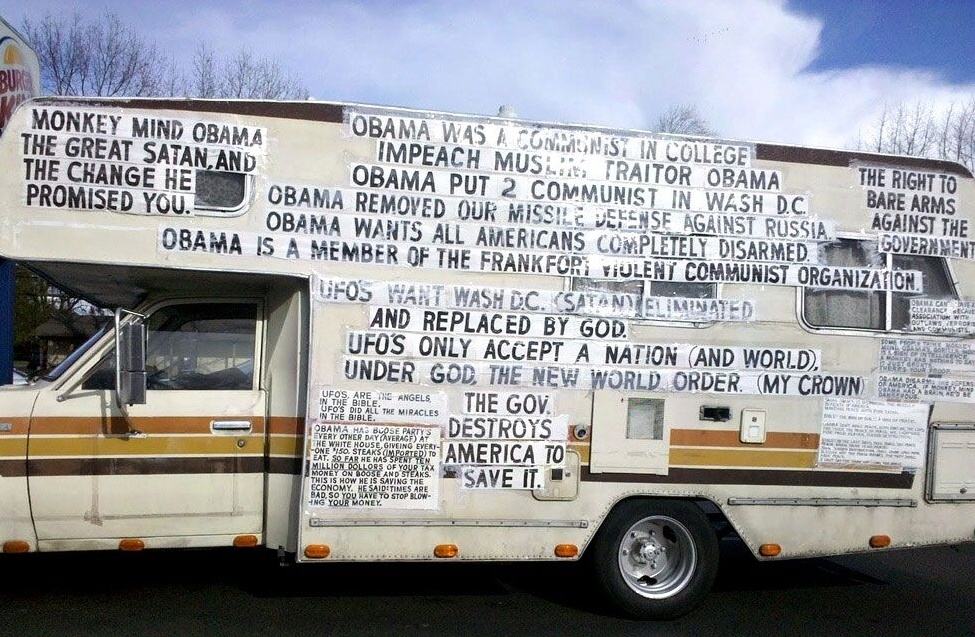 BURGER
KING
MONKEY MIND OBAMA
THE GREAT SATAN, AND
THE CHANGE HE
PROMISED YOU.
OBAMA WAS A COMMUNIST IN COLLEGE
IMPEACH MUSLIM TRAITOR OBAMA
OBAMA PUT 2 COMMUNIST IN WASH D.C.
OBAMA REMOVED OUR MISSILE DEFENSE AGAINST RUSSIA
OBAMA WANTS ALL AMERICANS COMPLETELY DISARMED.
OBAMA IS A MEMBER OF THE FRANKFORT VIOLENT COMMUNIST ORGANIZATION.
THE RIGHT TO
BARE ARMS
AGAINST THE
GOVERNMENT
UFO'S WANT WASH D.C. (SATAN) ELIMINATED
AND REPLACED BY GOD.
UFO'S ONLY ACCEPT A NATION (AND WORLD),
UNDER GOD, THE NEW WORLD ORDER. (MY CROWN)
UFO'S, ARE THE ANGELS,
IN THE BIBLE.
UFO'S DID ALL THE MIRACLES
IN THE BIBLE.
OBAMA HAS BOOSE PARTY'S
EVERY OTHER DAY (AVERAGE) AT
THE WHITE HOUSE, GIVEING EVERY-
ONE $150. STEAKS (IMPORTED) TO
EAT. SO FAR HE HAS SPENT TEN
MILLION DOLLORS OF YOUR TAX
MONEY ON BOOSE AND STEAKS.
THIS IS HOW HE IS SAVING THE
ECONOMY. HE SAID: TIMES ARE
BAD, SO YOU HAVE TO STOP BLOW-
ING YOUR MONEY.
THE GOV.
DESTROYS
AMERICA TO
SAVE IT.
OBAMA CAN
CLEARANCE
ASSOCIATION WITH
OUTLAWS